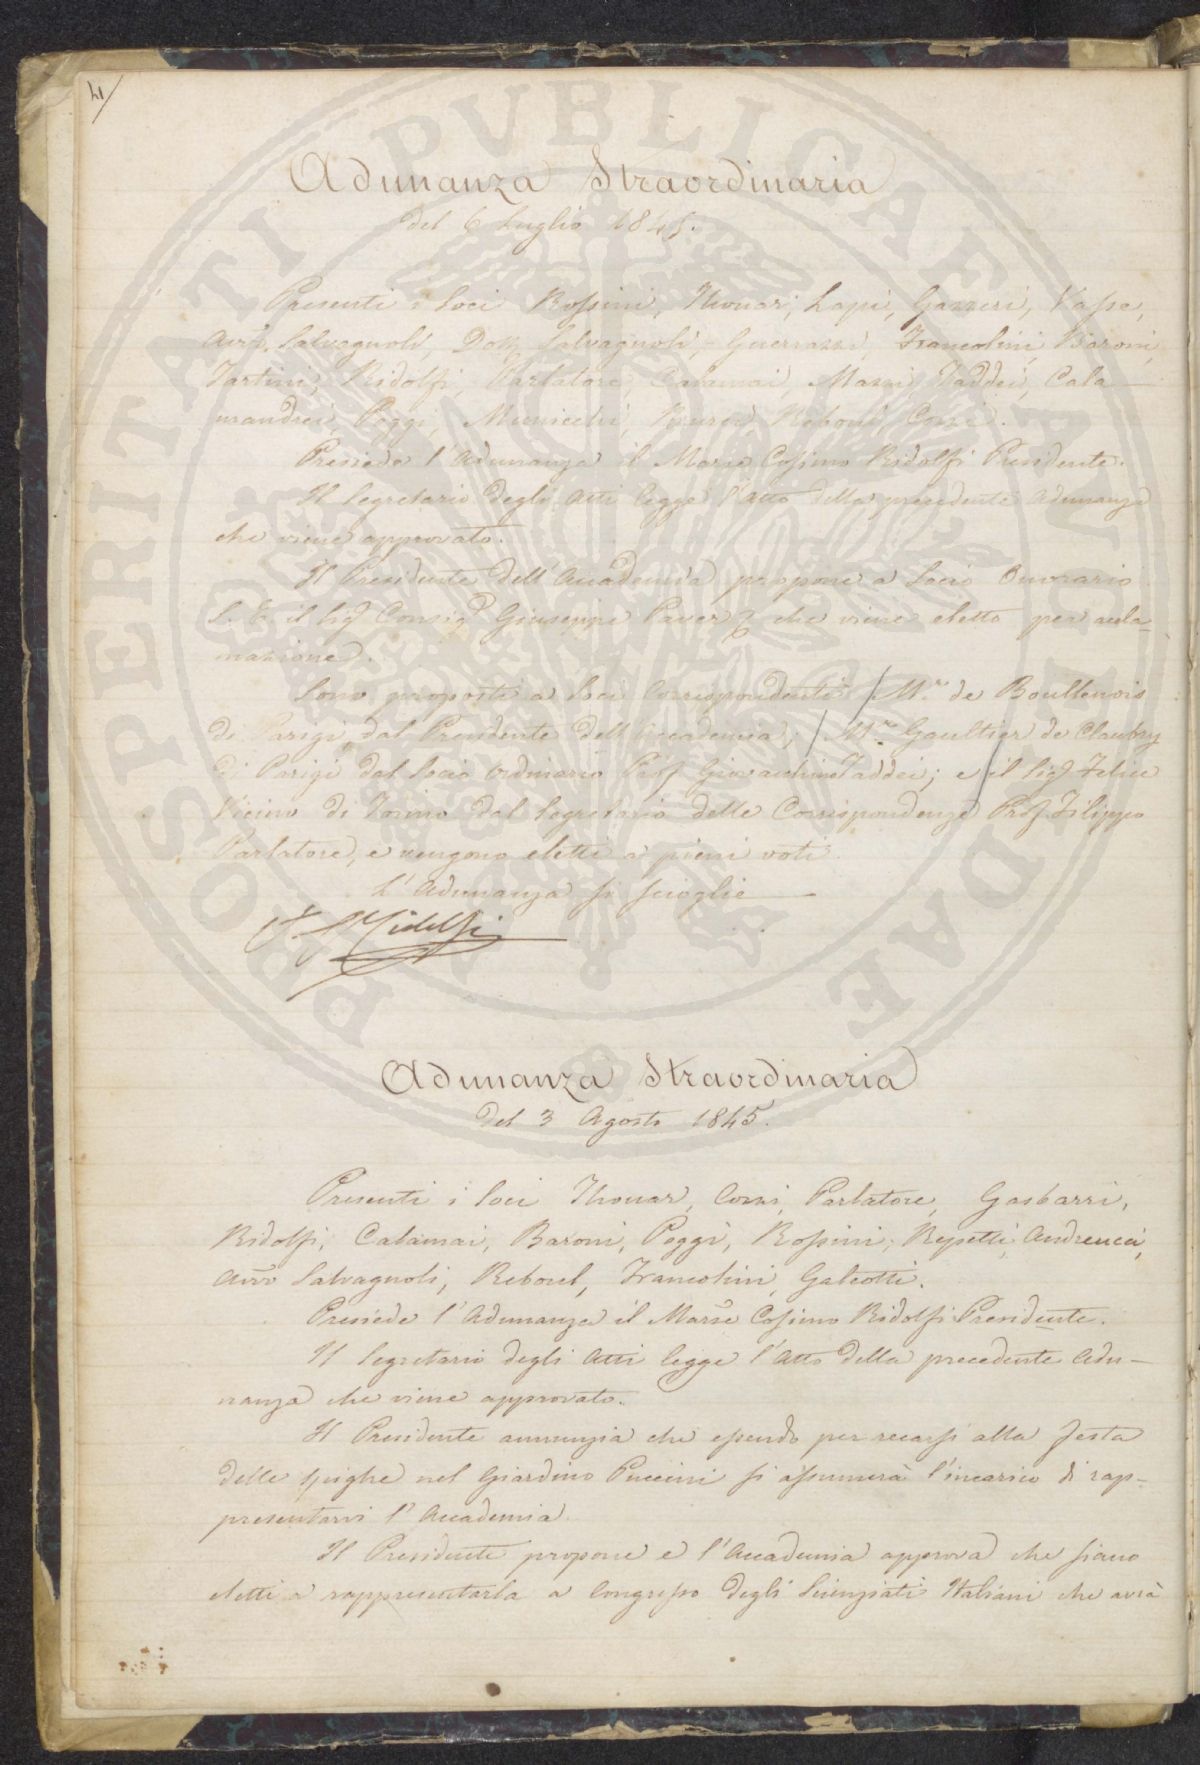 4/
PROSPERITATI PVBLICAE AVGENDAE
Adunanza Straordinaria
del 6 Luglio 1845.
Presenti i Soci Rossini, Thouar, Lapi, Gazzeri,
Avv. Salvagnoli, Dott. Salvagnoli, Guerrazzi, Francolini, Baroni,
Tartini, Ridolfi, Parlatore, Calamai, Mazzi, Taddei, Cala
mandrei, Poggi, Municchi, Reboul, Corsi.
Presiede l'Adunanza il Marse Cosimo Ridolfi Presidente.
Il Segretario degli Atti legge l'atto della precedente adunanza
che viene approvato.
Il Presidente dell'Accademia propone a Socio Onorario
S. E. il Sig Consig Giuseppe Paver che viene eletto per accla-
mazione.
Sono proposti a Soci Corrispondenti / Mr. de Boullenois
di Parigi dal Presidente dell'Accademia; / Mr. Gaultier de Claubry
di Parigi dal Socio Ordinario Prof Giovacchino Taddei; e / il Sig Felice
Vicino di Torino dal Segretario delle Corrispondenze Prof Filippo
Parlatore, e vengono eletti a pieni voti.
L'Adunanza si scioglie
C. Ridolfi
Adunanza Straordinaria
del 3 Agosto 1845.
Presenti i Soci Thouar, Corsi, Parlatore, Gasbarri,
Ridolfi, Calamai, Baroni, Poggi, Rossini, Repetti, Andreucci,
Avvo Salvagnoli, Reboul, Francolini, Galeotti.
Presiede l'Adunanza il Marse Cosimo Ridolfi Presidente.
Il Segretario degli Atti legge l'Atto della precedente Adu-
nanza che viene approvato.
Il Presidente annunzia che essendo per recarsi alla festa
delle spighe nel Giardino Puccini si assumerà l'incarico di rap-
presentarvi l'Accademia.
Il Presidente propone e l'Accademia approva che siano
eletti a rappresentarla a Congresso degli Scienziati Italiani che avrà